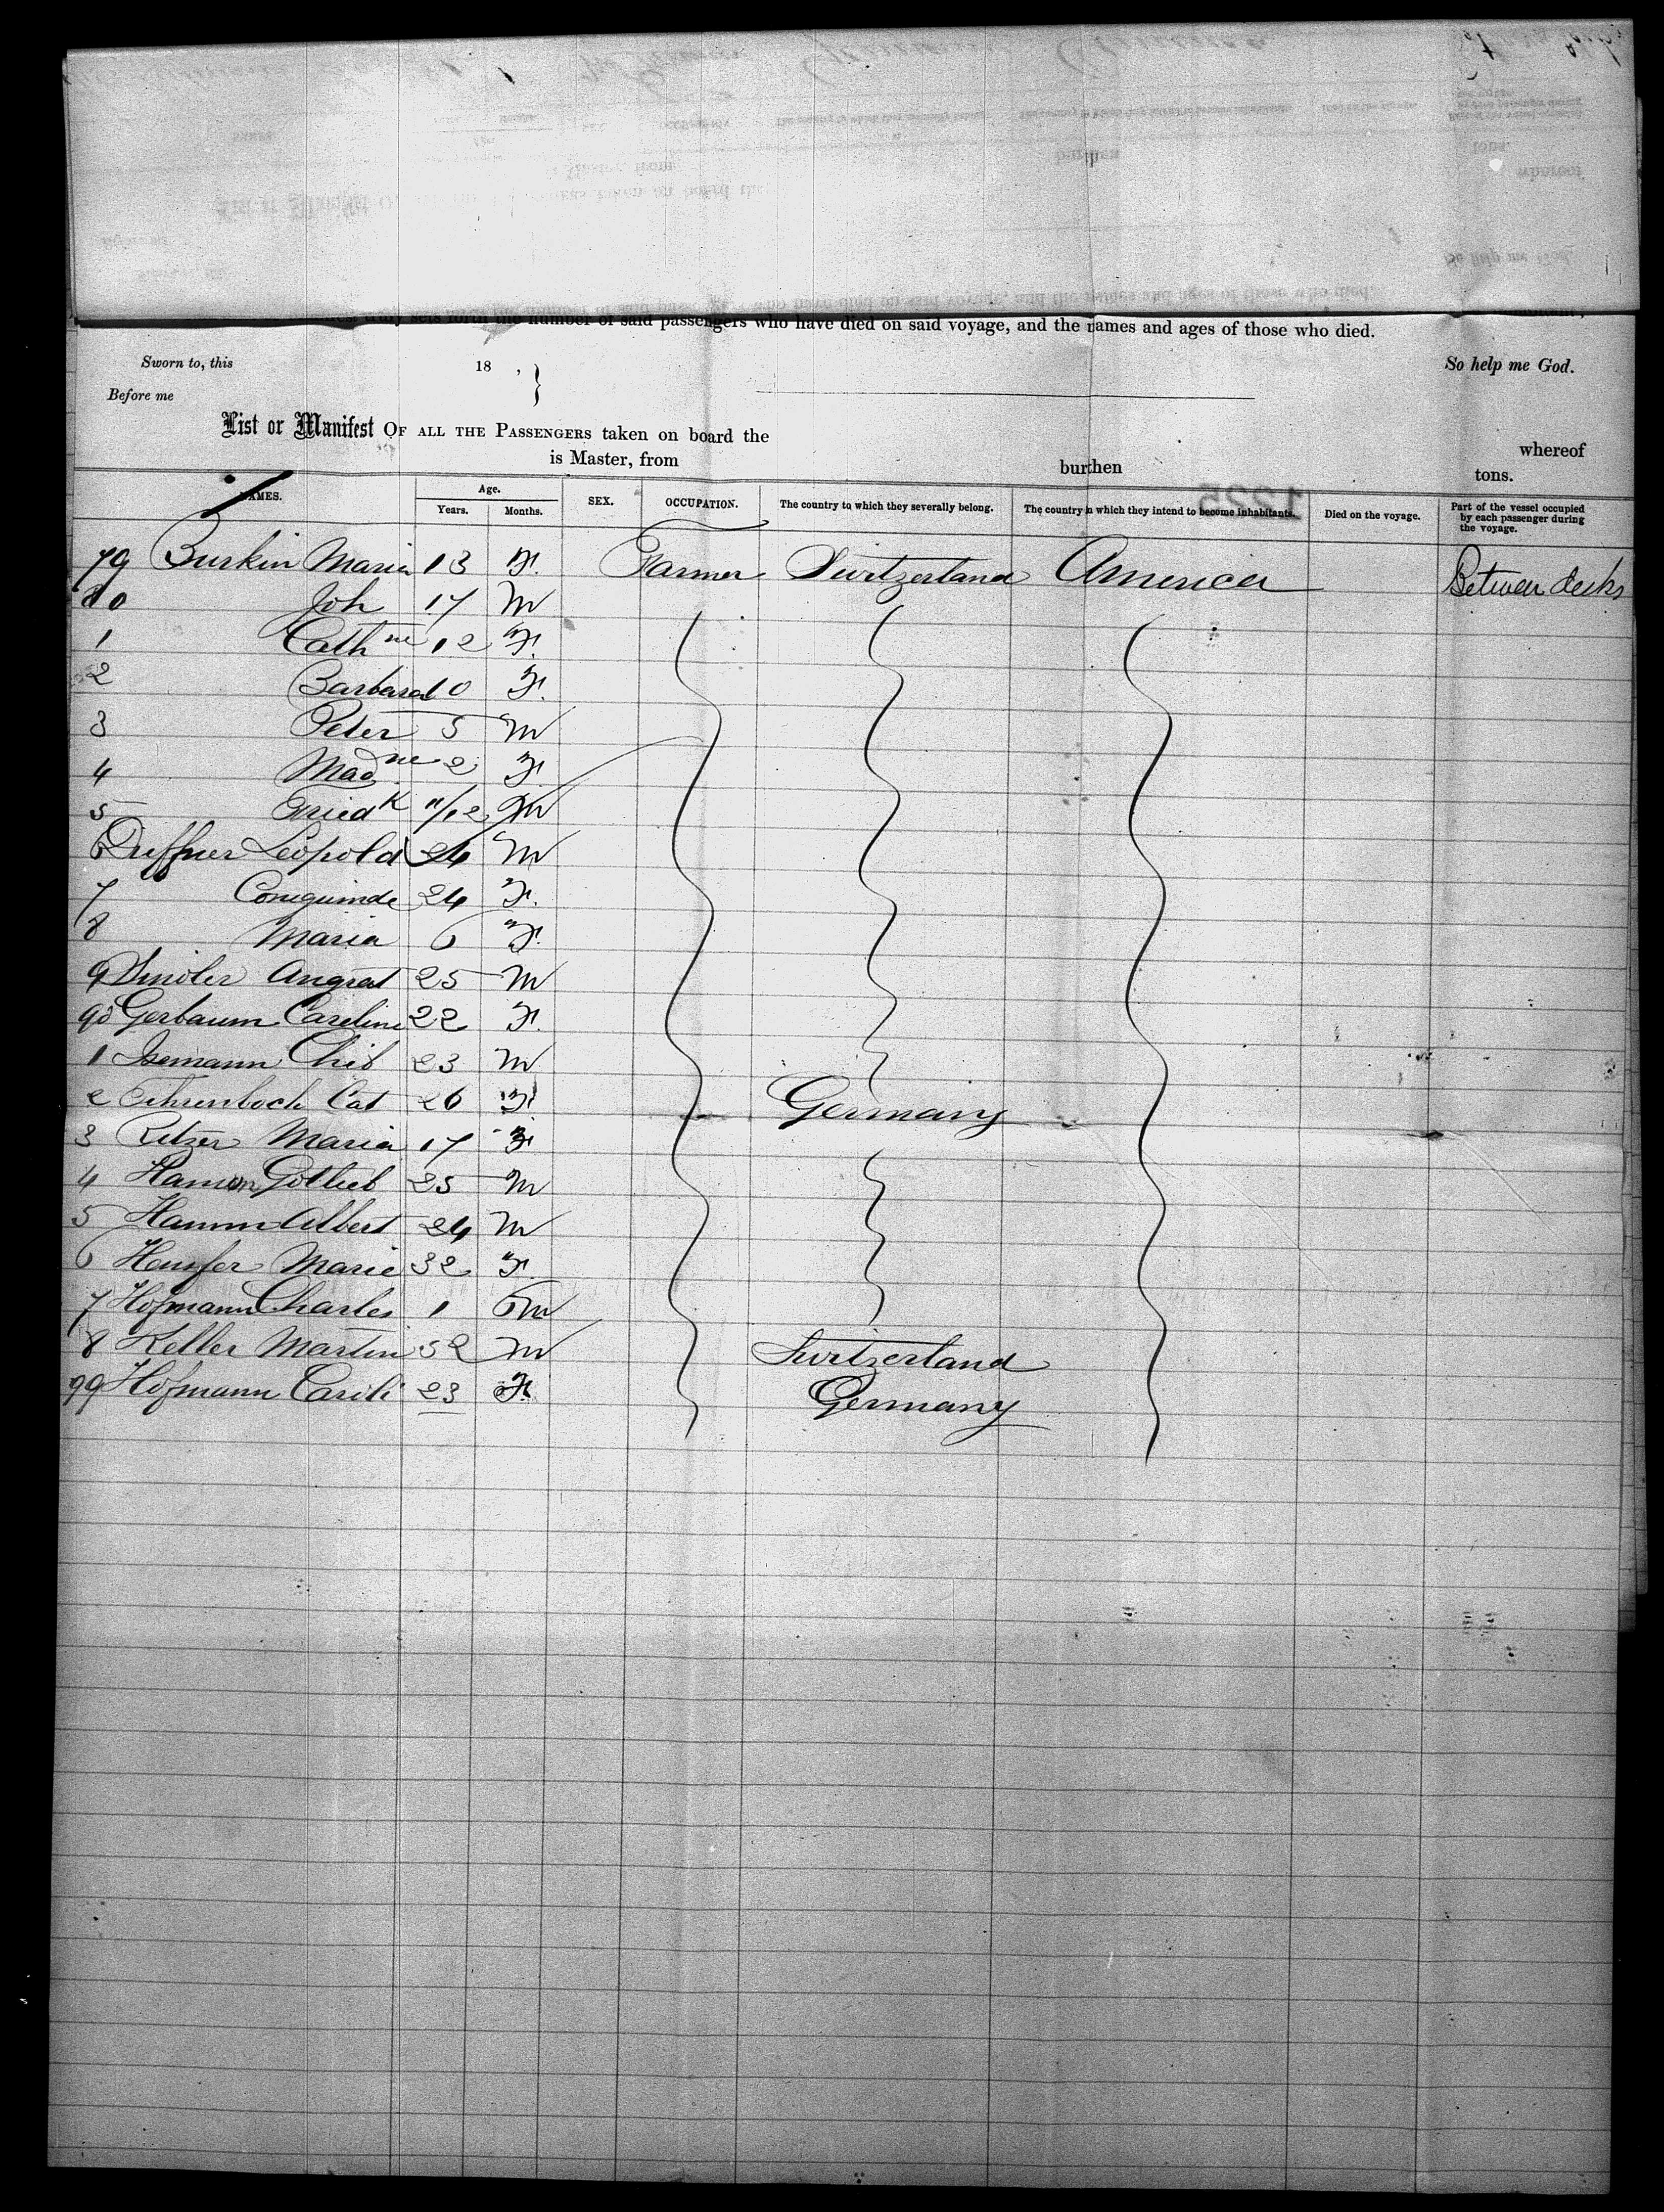 the number of said passengers who have died on said voyage, and the names and ages of those who died.
Sworn to, this 18 , } So help me God.
Before me
List or Manifest OF ALL THE PASSENGERS taken on board the whereof
is Master, from burthen tons.
NAMES. Age. Years. Months. SEX. OCCUPATION. The country to which they severally belong. The country in which they intend to become inhabitants. Died on the voyage. Part of the vessel occupied by each passenger during the voyage.
79 Burkin Maria 13 F. Farmer Switzerland America Between decks
80 Joh 17 M
1 Cathne 12 F.
2 Barbara 10 F.
3 Peter 5 M
4 Madne 2 F
5 Friedk 11/12 M
6 Duffner Leopold 24 M
7 24 F.
8 Maria 6 F.
9 25 M
90 Gerbaum Caroline 22 F.
1 Isemann 23 M
2 Fehrenbach Cat 26 F Germany
3 Retzer Maria 17 F
4 Hamm Gottlieb 25 M
5 Hamm Albert 24 M
6 Marie 32 F.
7 Hofmann Charles 1 6 M
8 Keller Martin 52 M Switzerland
99 Hofmann Caroli 23 F. Germany